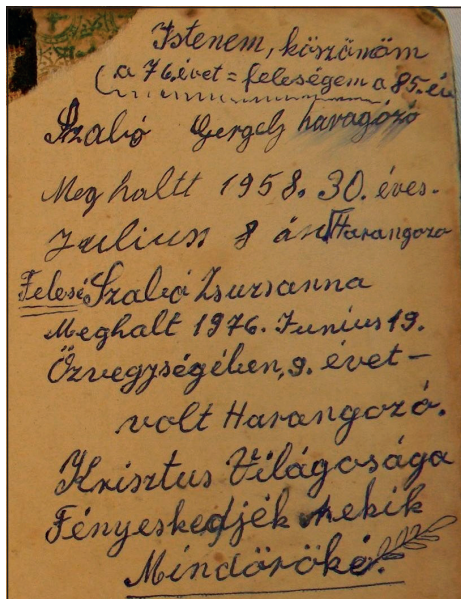 Istenem, köszönöm
(a 76 évet = feleségem a 85. év
Szabó Gergely haragózó
Meg haltt 1958. 30. éves.
Július 8 án Harangozo
Felesé Szabó Zsuzsanna
Meghalt 1976. Junius 19.
Özvegységében, 9. évet-
volt Harangozó.
Krisztus Világosága
Fényeskedjék nekik
Mindöröké.